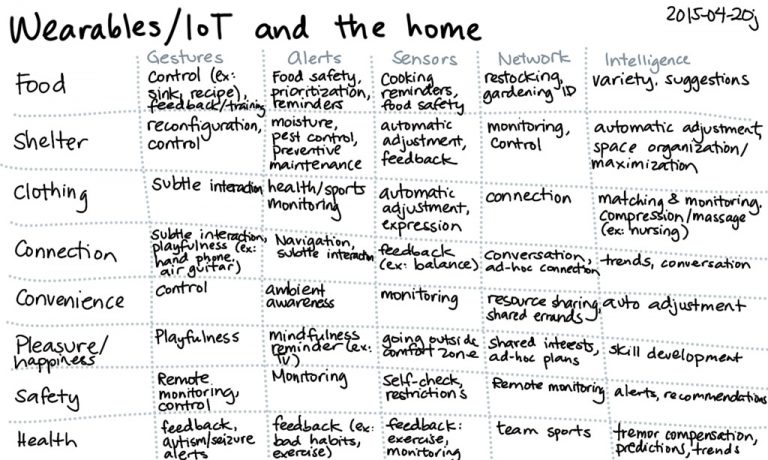 Wearables/IoT and the home
2015-04-20j
Gestures Alerts Sensors Network Intelligence
Food
control (ex:
sink, recipe),
feedback/training
Food safety,
prioritization,
reminders
cooking
reminders,
food safety
restocking,
gardening ID
variety, suggestions
Shelter
reconfiguration,
control
moisture,
pest control,
preventive
maintenance
automatic
adjustment,
feedback
monitoring,
control
automatic adjustment,
space organization/
maximization
Clothing
subtle interaction
health/sports
monitoring
automatic
adjustment,
expression
connection
matching & monitoring.
compression/massage
(ex: nursing)
Connection
subtle interaction,
playfulness (ex:
hand phone,
air guitar)
Navigation,
subtle interactn
feedback
(ex: balance)
conversation,
ad-hoc connection
trends, conversation
Convenience
control
ambient
awareness
monitoring
resource sharing,
shared errands
auto adjustment
Pleasure/
happiness
Playfulness
mindfulness
reminder (ex:
TV)
going outside
comfort zone
shared interests,
ad-hoc plans
skill development
Safety
Remote
monitoring,
control
Monitoring
Self-check,
restrictions
Remote monitoring
alerts, recommendations
Health
feedback,
autism/seizure
alerts
feedback (ex:
bad habits,
exercise)
feedback:
exercise,
monitoring
team sports
tremor compensation,
predictions, trends